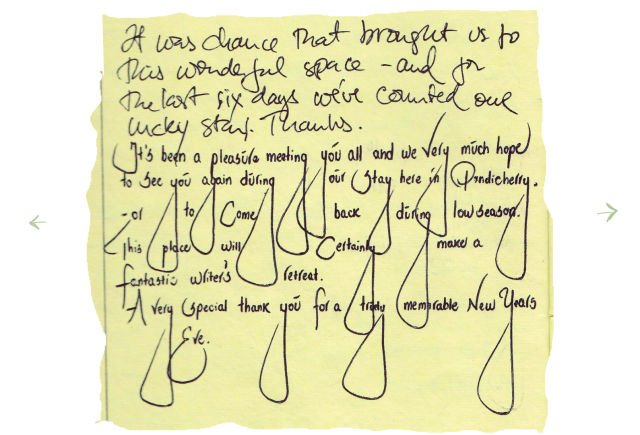 It was chance that brought us to
this wonderful space - and for
the last six days we've counted our
lucky stars. Thanks.
It's been a pleasure meeting you all and we very much hope
to see you again during our stay here in Pondicherry.
- or to come back during low season.
This place will certainly make a
fantastic writer's retreat.
A very special thank you for a truly memorable New Years
Eve.